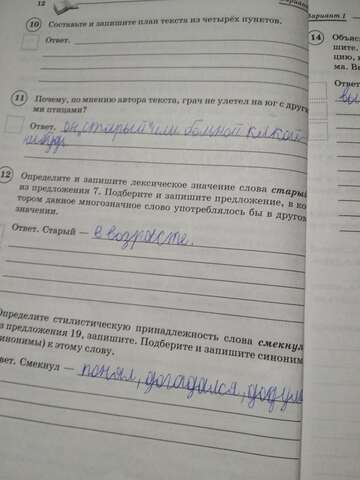 12
Вариант
10 Составьте и запишите план текста из четырёх пунктов.
Ответ.
11 Почему, по мнению автора текста, грач не улетел на юг с други
ми птицами?
Ответ. он старый или больной какой
нибудь
12 Определите и запишите лексическое значение слова старый
из предложения 7. Подберите и запишите предложение, в ко
тором данное многозначное слово употреблялось бы в другом
значении.
Ответ. Старый — в возрасте.
Определите стилистическую принадлежность слова смекнул
з предложения 19, запишите. Подберите и запишите синоним
инонимы) к этому слову.
вет. Смекнул — понял, догадался, додума
Вариант 1
14 Объяс
шите,
цию, в
ма. Вы
Ответ